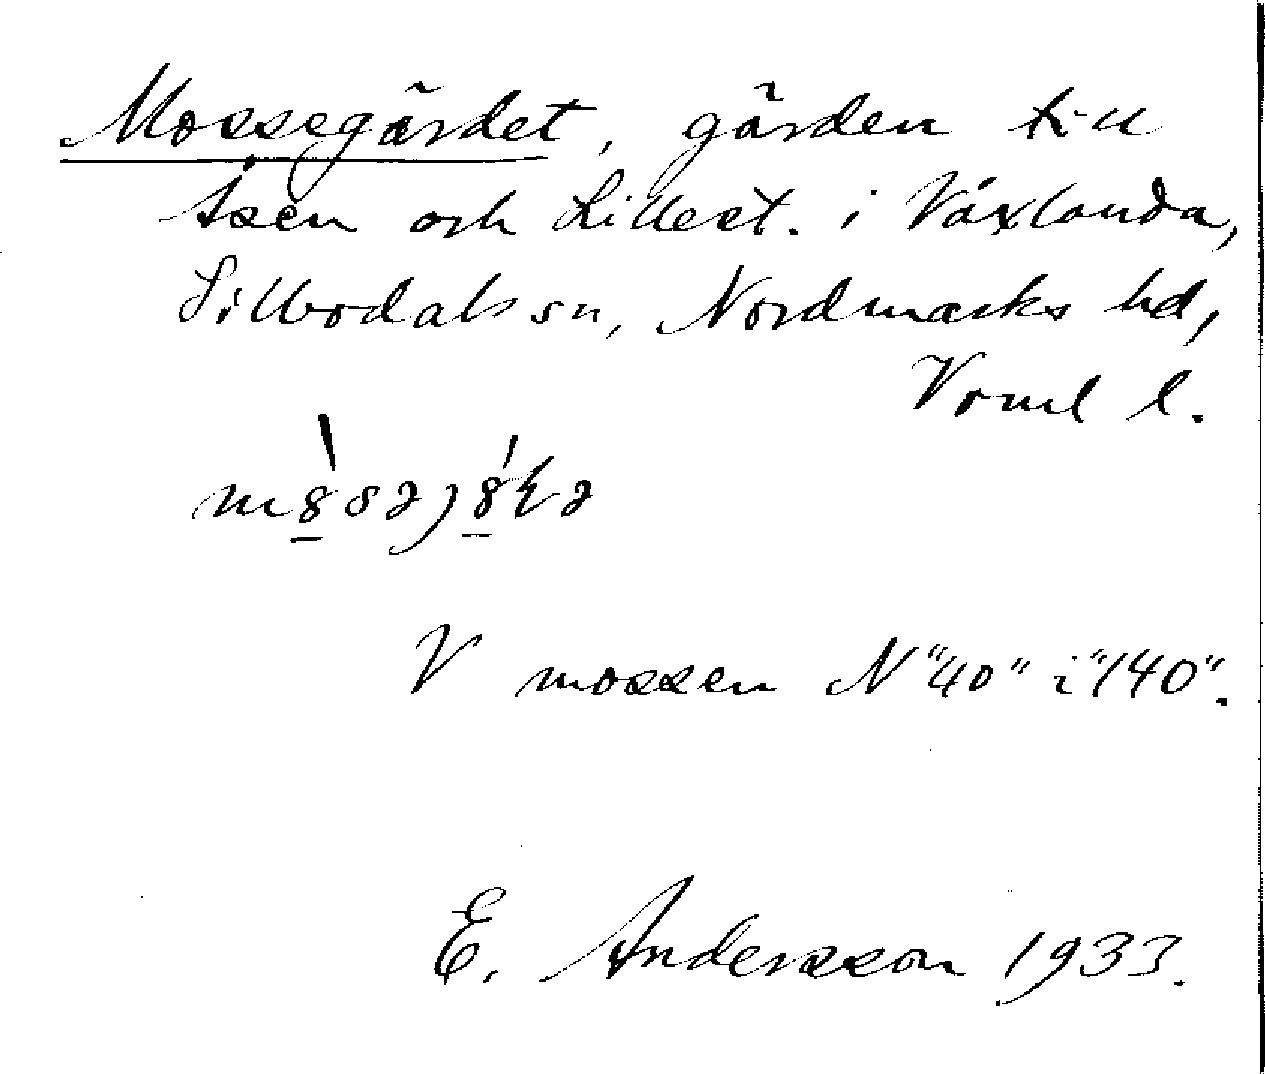 Mossegärdet, gärden till
Åsen och Lillest. i Växlanda,
Sillbodals sn, Nordmarks hd,
Vrml l.
V mossen N "40" i "140".
E. Andersson 1933.